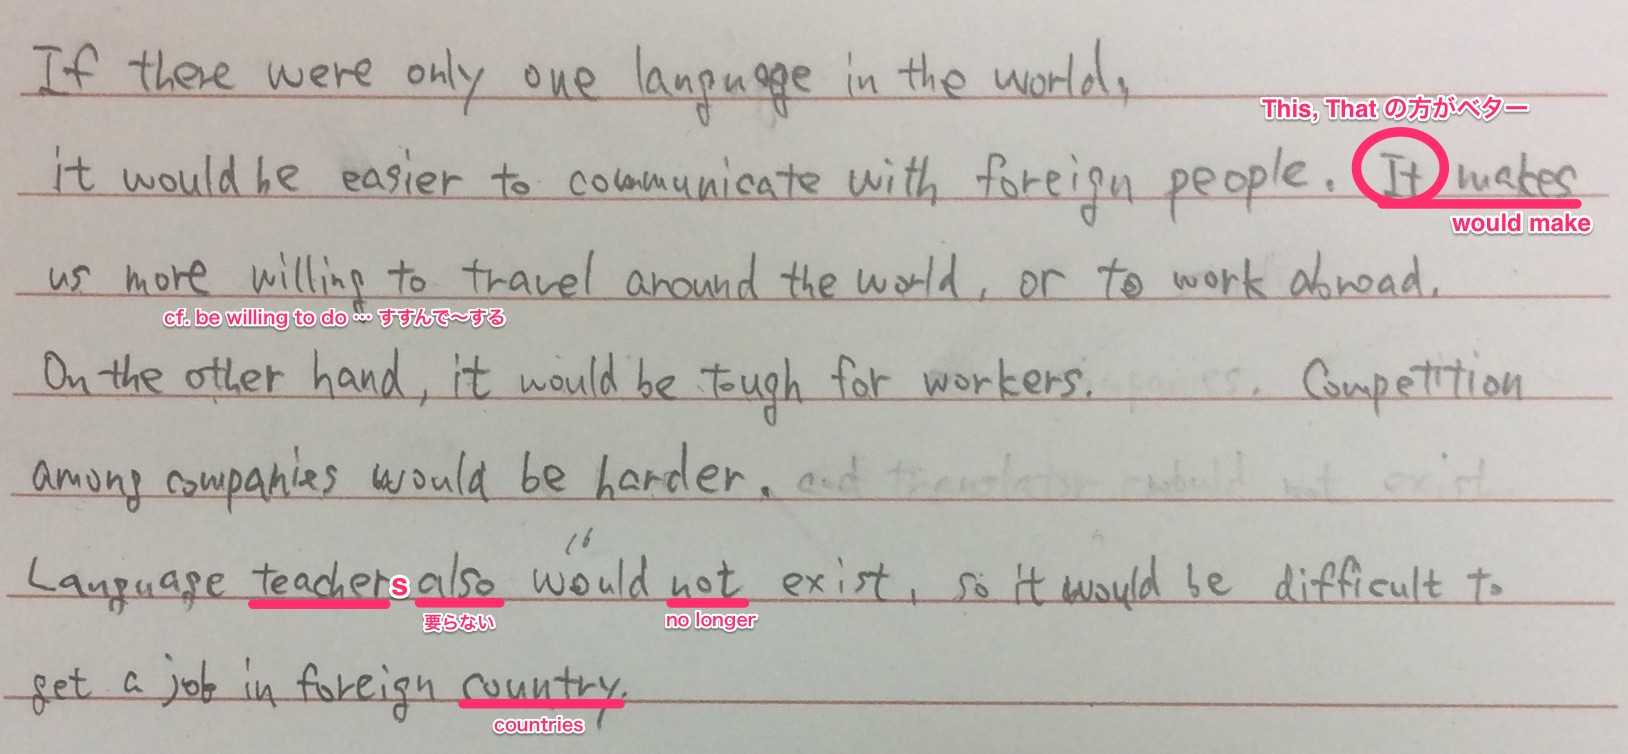 If there were only one language in the world,
This, That の方がベター
it would be easier to communicate with foreign people. It makes
would make
us more willing to travel around the world, or to work abroad.
cf. be willing to do … すすんで〜する
On the other hand, it would be tough for workers. Competition
among companies would be harder.
Language teachers also would not exist, so it would be difficult to
要らない no longer
get a job in foreign country.
countries